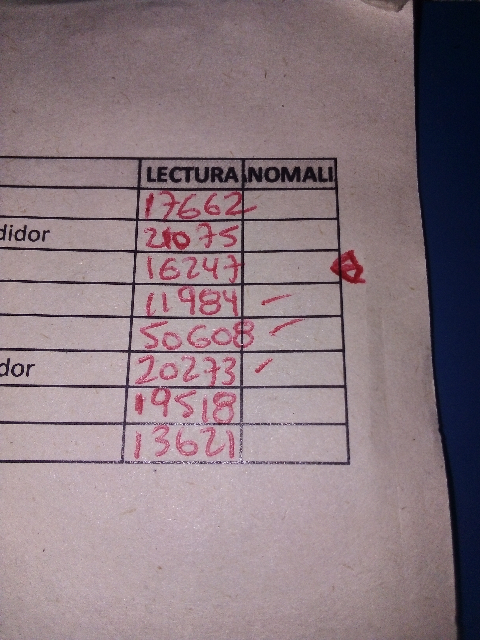 LECTURA NOMALI
17662
didor 21075
16247
11984
50608
dor 20273
19518
13621